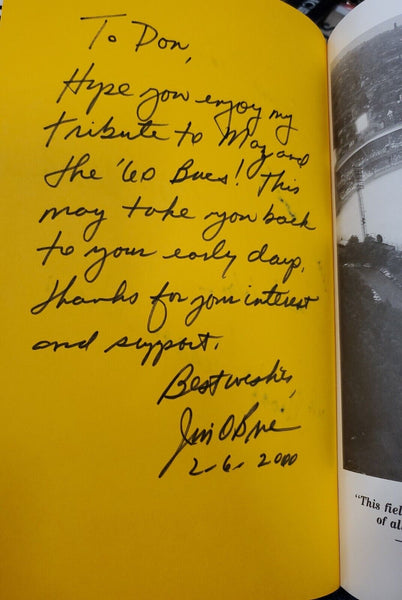 To Don,
Hope you enjoy my
tribute to Maz and
the '60 Bucs! This
may take you back
to your early days.
Thanks for your interest
and support.
Best wishes,
Jim O'Brien
2-6-2000
"This fiel
of al